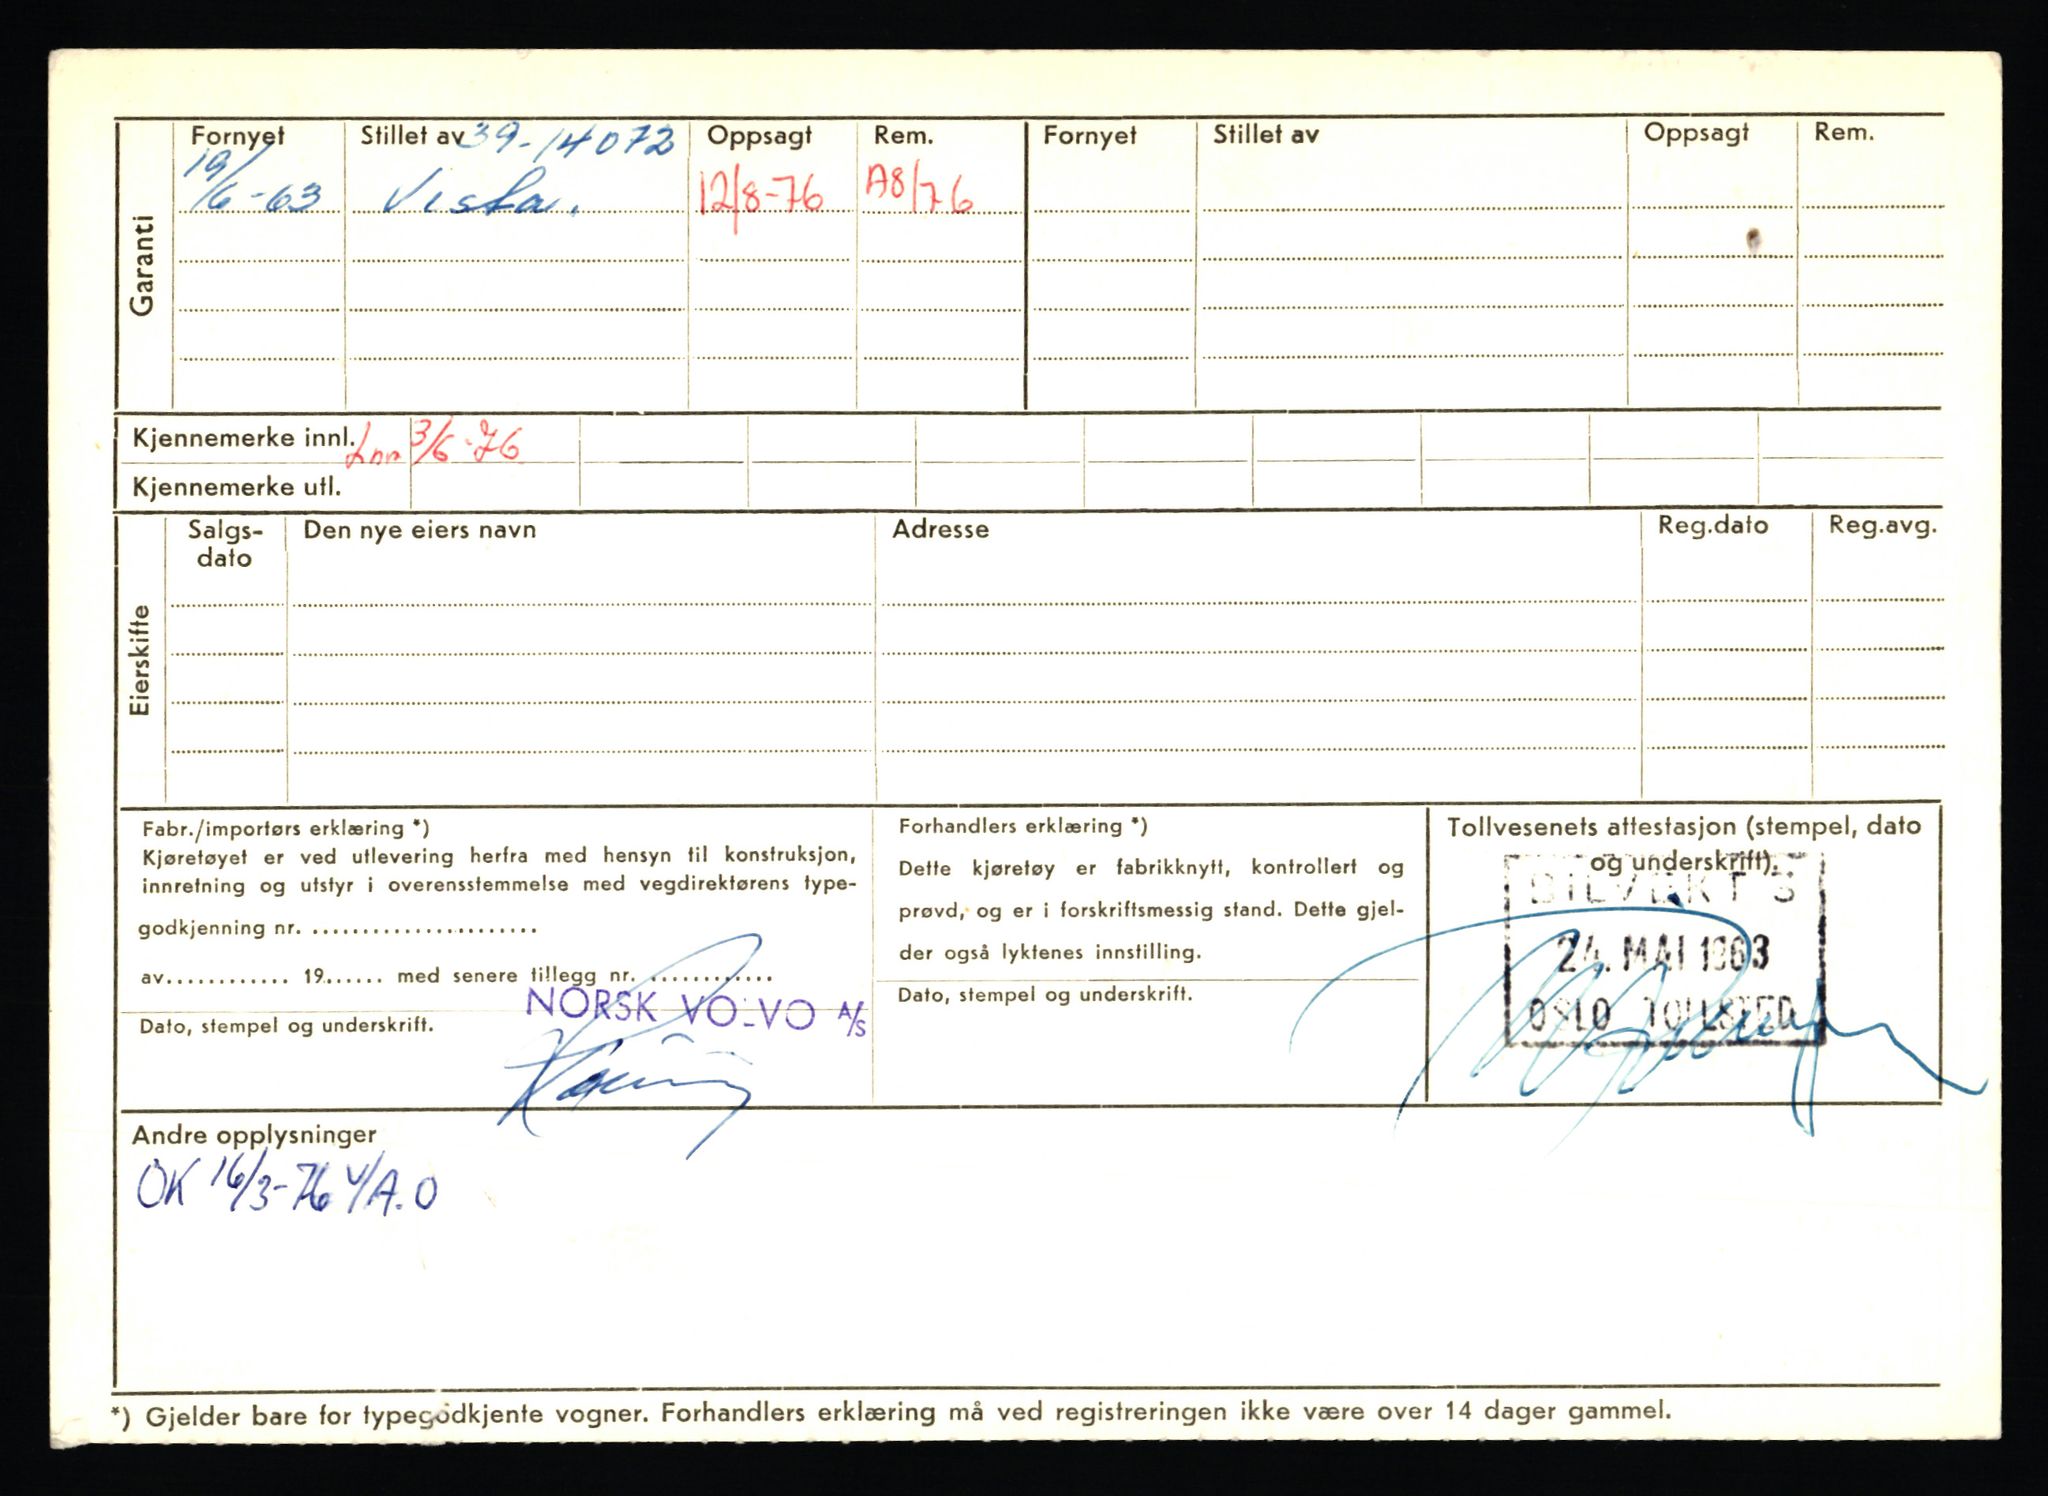 Garanti
Fornyet Stillet av Oppsagt Rem. Fornyet Stillet av Oppsagt Rem.
39-14072
19/6-63 Vesta. 12/8-76 A8/76
Kjennemerke innl. 3/6-76
Kjennemerke utl.
Eierskifte
Salgs-
dato
Den nye eiers navn Adresse Reg.dato Reg.avg.
Fabr./importørs erklæring *)
Kjøretøyet er ved utlevering herfra med hensyn til konstruksjon,
innretning og utstyr i overensstemmelse med vegdirektørens type-
godkjenning nr. ......................
av............ 19...... med senere tillegg nr. ............
NORSK VO-VO A/S
Dato, stempel og underskrift.
Forhandlers erklæring *)
Dette kjøretøy er fabrikknytt, kontrollert og
prøvd, og er i forskriftsmessig stand. Dette gjel-
der også lyktenes innstilling.
Dato, stempel og underskrift.
Tollvesenets attestasjon (stempel, dato
og underskrift).
BILVEKT S
24. MAI 1963
OSLO TOLLSTED
Andre opplysninger
OK 16/3-76 V/A.O
*) Gjelder bare for typegodkjente vogner. Forhandlers erklæring må ved registreringen ikke være over 14 dager gammel.